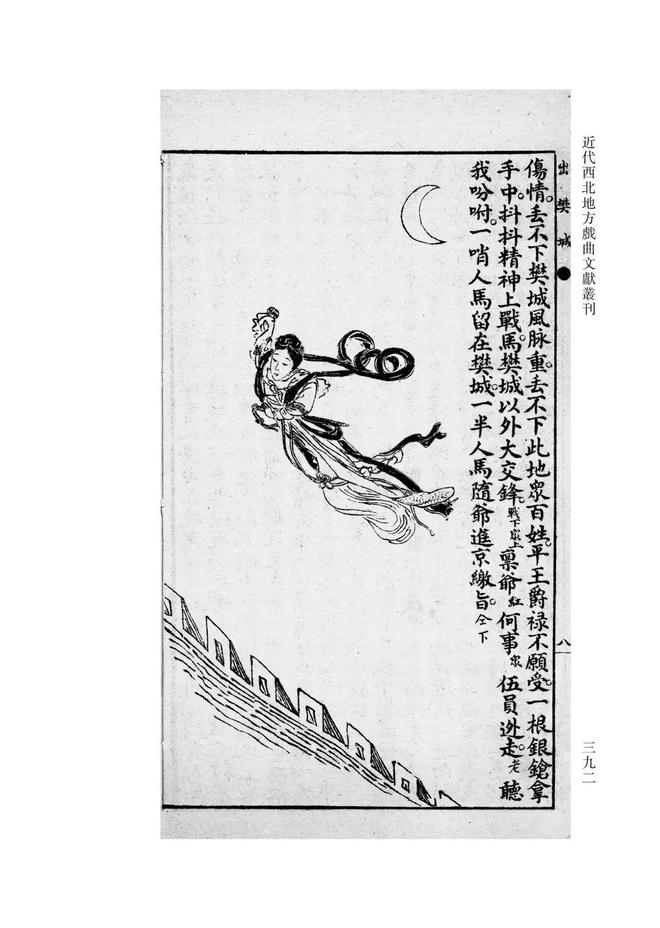 近代西北地方戲曲文獻叢刊
三九二
出樊城●
八
傷情。丢不下樊城風脉重。丢不下此地眾百姓。平王爵禄不願受。一根銀鎗拿
手中。抖抖精神上戰馬。樊城以外大交鋒。戰下眾上稟爺紅何事眾伍員迯走。老聽
我吩咐。一哨人馬留在樊城。一半人馬隨爺進京繳旨。仝下